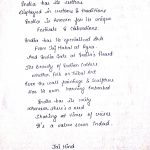 India has its culture
displayed in customs & traditions
India is known for its unique
Festivals & Celebrations.
India has its specialised Art
From Taj Mahal of Agra
And India Gate at Delhi's Heart
The beauty of Indian Culture
whether Folk or Tribal Art
Even the wall paintings & Sculpture
Has its own learning
India has its unity
wherever there's a need
Standing at times of crisis
It's a nation some Indeed.
Jai Hind